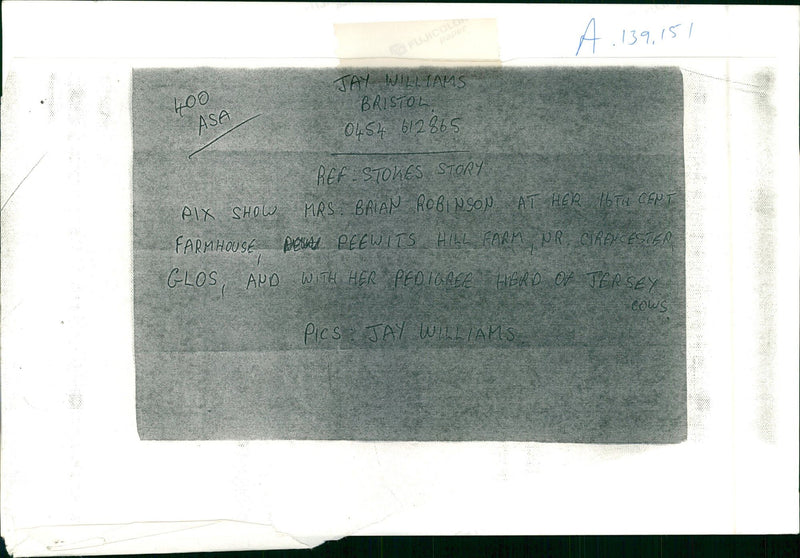 FUJICOLOR
paper
A.139,151
400
ASA
JAY WILLIAMS
BRISTOL.
0454 612865
REF-STOKES STORY
PIX SHOW MRS. BRIAN ROBINSON AT HER 16TH CENT
FARMHOUSE, PEEWITS HILL FARM, NR. CIRENCESTER,
GLOS, AND WITH HER PEDIGREE HERD OF JERSEY
COWS.
PICS: JAY WILLIAMS